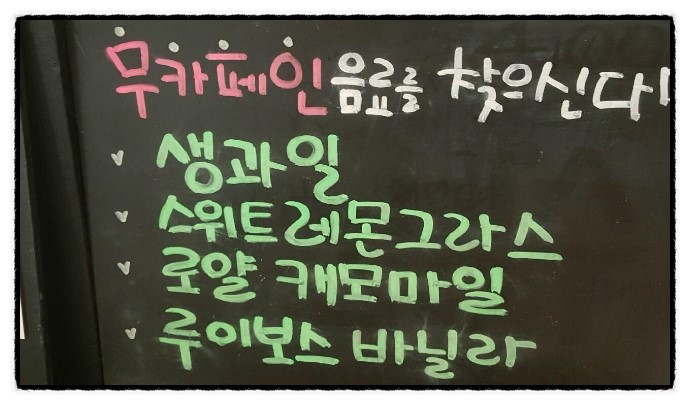 무카페인 음료를 찾으신다!
생과일
스위트레몬그라스
로얄 캐모마일
루이보스 바닐라